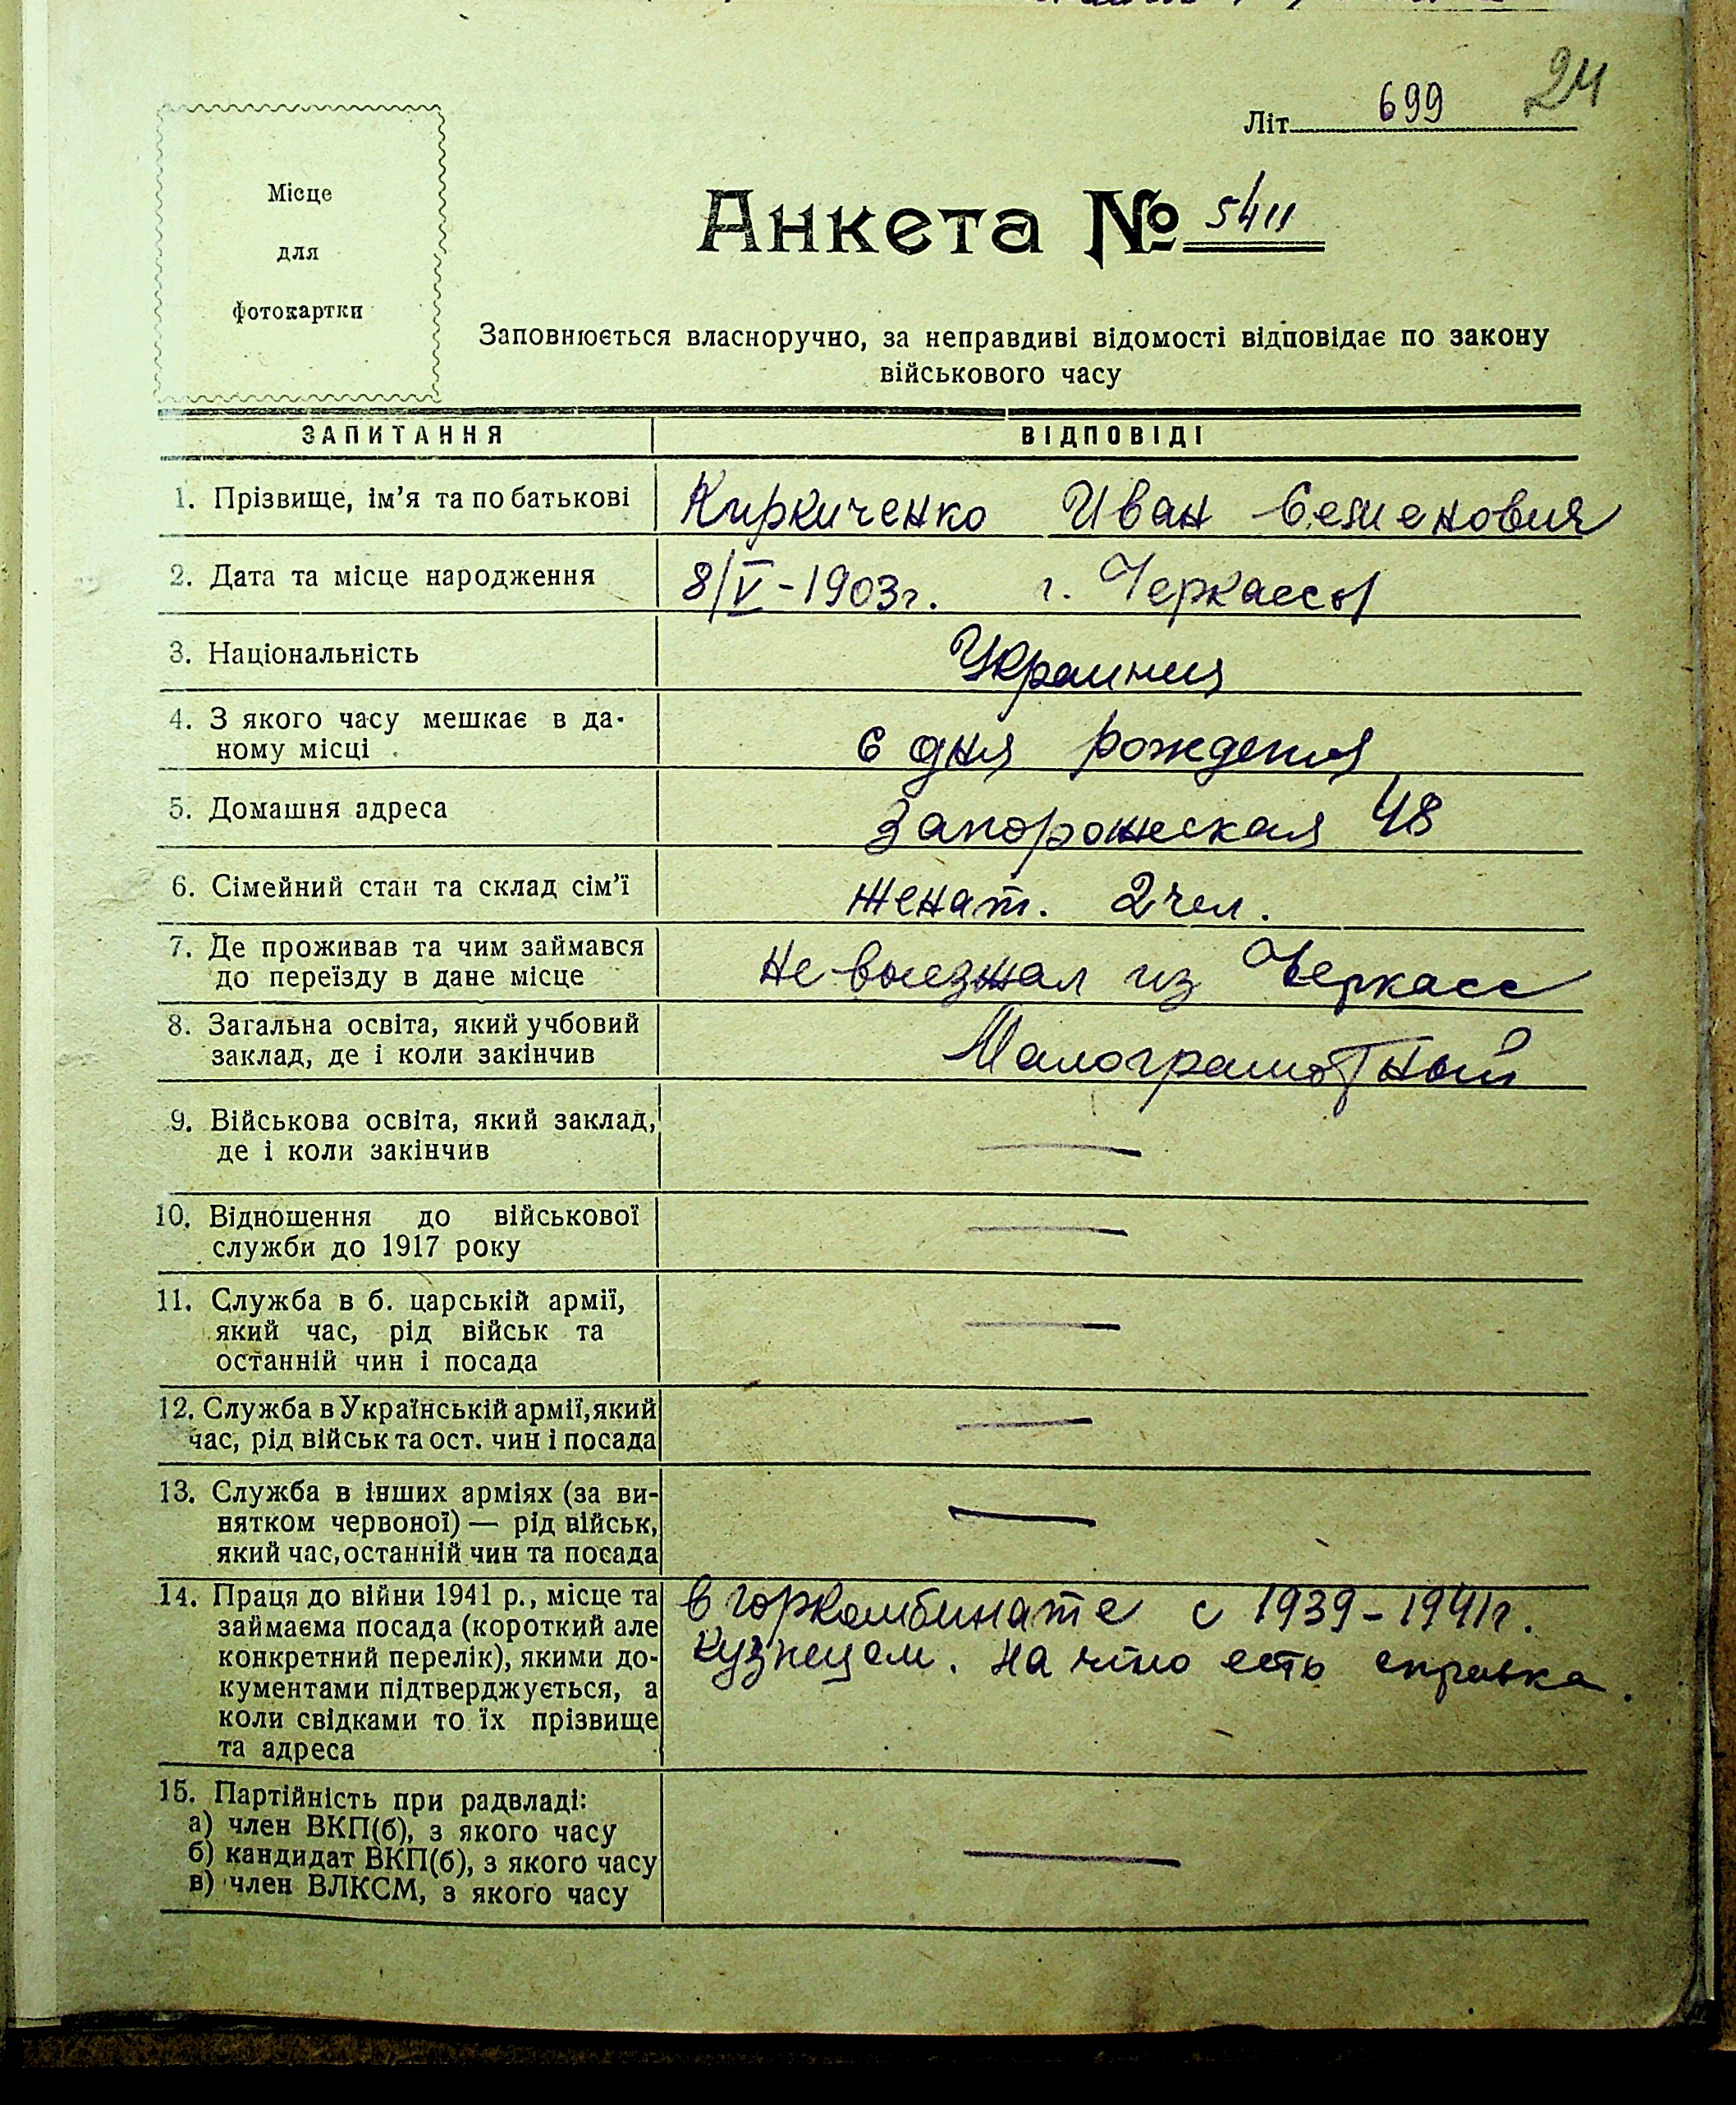 24
Літ. 699
Місце
для
фотокартки
Анкета № 5411
Заповнюється власноручно, за неправдиві відомості відповідає по закону
військового часу
ЗАПИТАННЯ ВІДПОВІДІ
1. Прізвище, ім'я та по батькові Киркиченко Иван Семенович
2. Дата та місце народження 8/V-1903г. г. Черкассы
3. Національність Украинец
4. З якого часу мешкає в да-
ному місці с дня рождения
5. Домашня адреса Запорожеская 48
6. Сімейний стан та склад сім'ї женат. 2 чел.
7. Де проживав та чим займався
до переїзду в дане місце Не выезжал из Черкасс
8. Загальна освіта, який учбовий
заклад, де і коли закінчив Малограмотный
9. Військова освіта, який заклад,
де і коли закінчив —
10. Відношення до військової
служби до 1917 року —
11. Служба в б. царській армії,
який час, рід військ та
останній чин і посада —
12. Служба в Українській армії, який
час, рід військ та ост. чин і посада —
13. Служба в інших арміях (за ви-
нятком червоної) — рід військ,
який час, останній чин та посада —
14. Праця до війни 1941 р., місце та в горкомбинате с 1939-1941г.
займаєма посада (короткий але кузнецем. На что есть справка.
конкретний перелік), якими до-
кументами підтверджується, а
коли свідками то їх прізвище
та адреса
15. Партійність при радвладі:
а) член ВКП(б), з якого часу
б) кандидат ВКП(б), з якого часу —
в) член ВЛКСМ, з якого часу